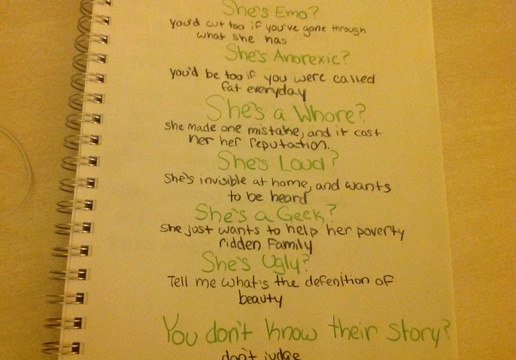 She's Emo?
you'd cut too if you've gone through
what she has
She's Anorexic?
you'd be too if you were called
fat everyday
She's a Whore?
she made one mistake, and it cost
her her reputation.
She's Loud?
She's invisible at home, and wants
to be heard
She's a Geek?
She just wants to help her poverty
ridden Family
She's Ugly?
Tell me what's the defenition of
beauty
You don't know their story?
don't judge